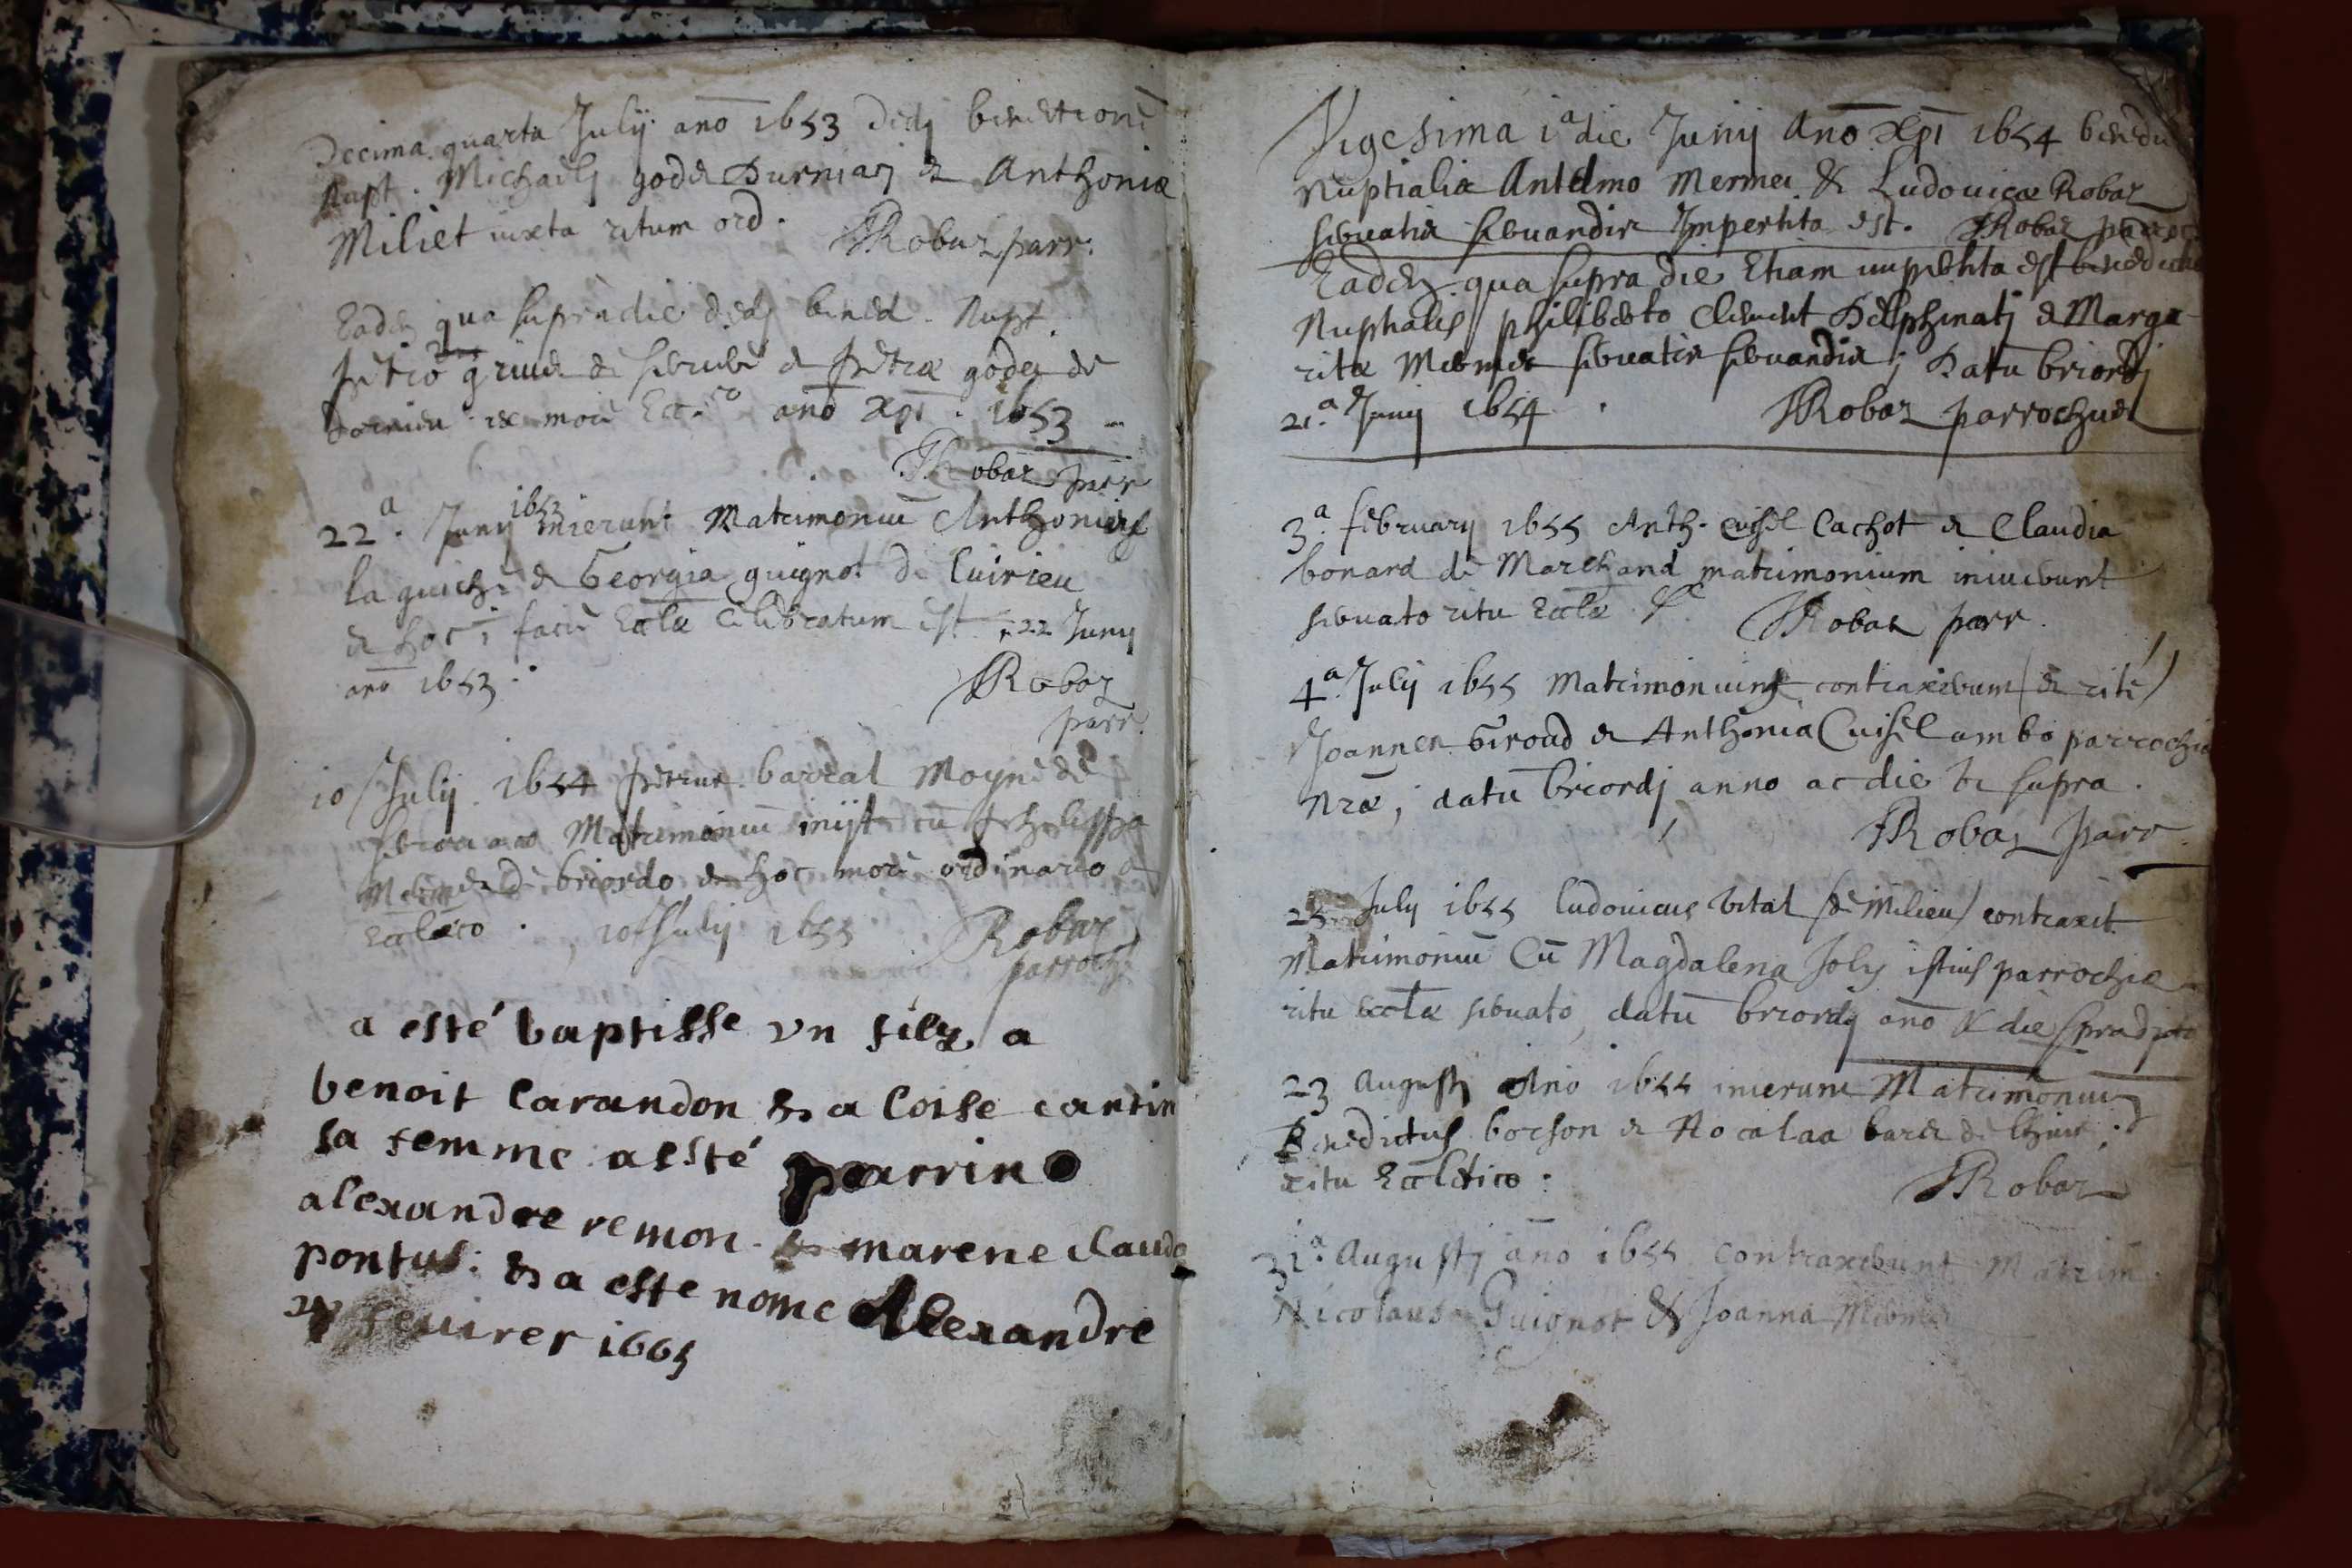 Decima quarta Julij ano 1653 dedj benedictione
Nupt. Michaelj godet Durniarj et Anthoniæ
Miliet iuxta ritum ord. Robaz parr.
Eadem qua supra die dedj bened. Nupt.
petro et petræ godet de
more ano Xpi 1653
Robaz parr
22.a Junij 1653 inierunt Matrimoniu Anthonius
la guiche et Georgia guignot de Cuirieu
et hoc i facie Eccl̄æ celebratum est 22 Junij
ano 1653.
Robaz
parr.
10 Julij 1654 petrus barral Moyne de
Matrimoniu inijt cu philippa
de briordo et hoc more ordinario
10 Julij 1655 Robaz
parroch.
a esté baptisse vn filz a
benoit Carandon & a Loise cantin
sa femme a esté parrin
alexandre remon & marene claude
pontus: & a este nome Alexandre
feuirer 1665
Vigesima i.a die Junij Ano Xpi 1654 benedi
Nuptialis Antelmo Mermet & Ludouicæ Robaz
seruatis seruandis Impertita est. Robaz parroc
Eadem qua supra die Etiam impertita est benedictio
Nuptialis philiberto Clement Delphinatj et Marga
ritæ Mermet seruatis seruandis; Datu briordj
21.a Junij 1654. Robaz parrochus
3.a february 1655 Anth. cuisel Cachot et Claudia
bonard de Marchand matrimonium iniuerunt
seruato ritu Eccl̄æ &c. Robaz parr.
4.a Julij 1655 Matrimonium contraxerunt (et rité)
Joannes Giroud et Anthonia Cuisel ambo parrochiæ
nræ, datu briordj anno ac die vt supra.
Robaz parr.
25 July 1655 ludouicus vital (de Milieu) contraxit
Matrimoniu Cu Magdalena Joly istius parrochiæ
ritu eccl̄æ seruato, datu briordj ano & die
23 Augustj Ano 1655 inierunt Matrimonium
Benedictus bocson et
ritu Robaz
31.a Augustj ano 1655 contraxerunt Matrim.
Nicolaus Guignot & Joanna Mermet